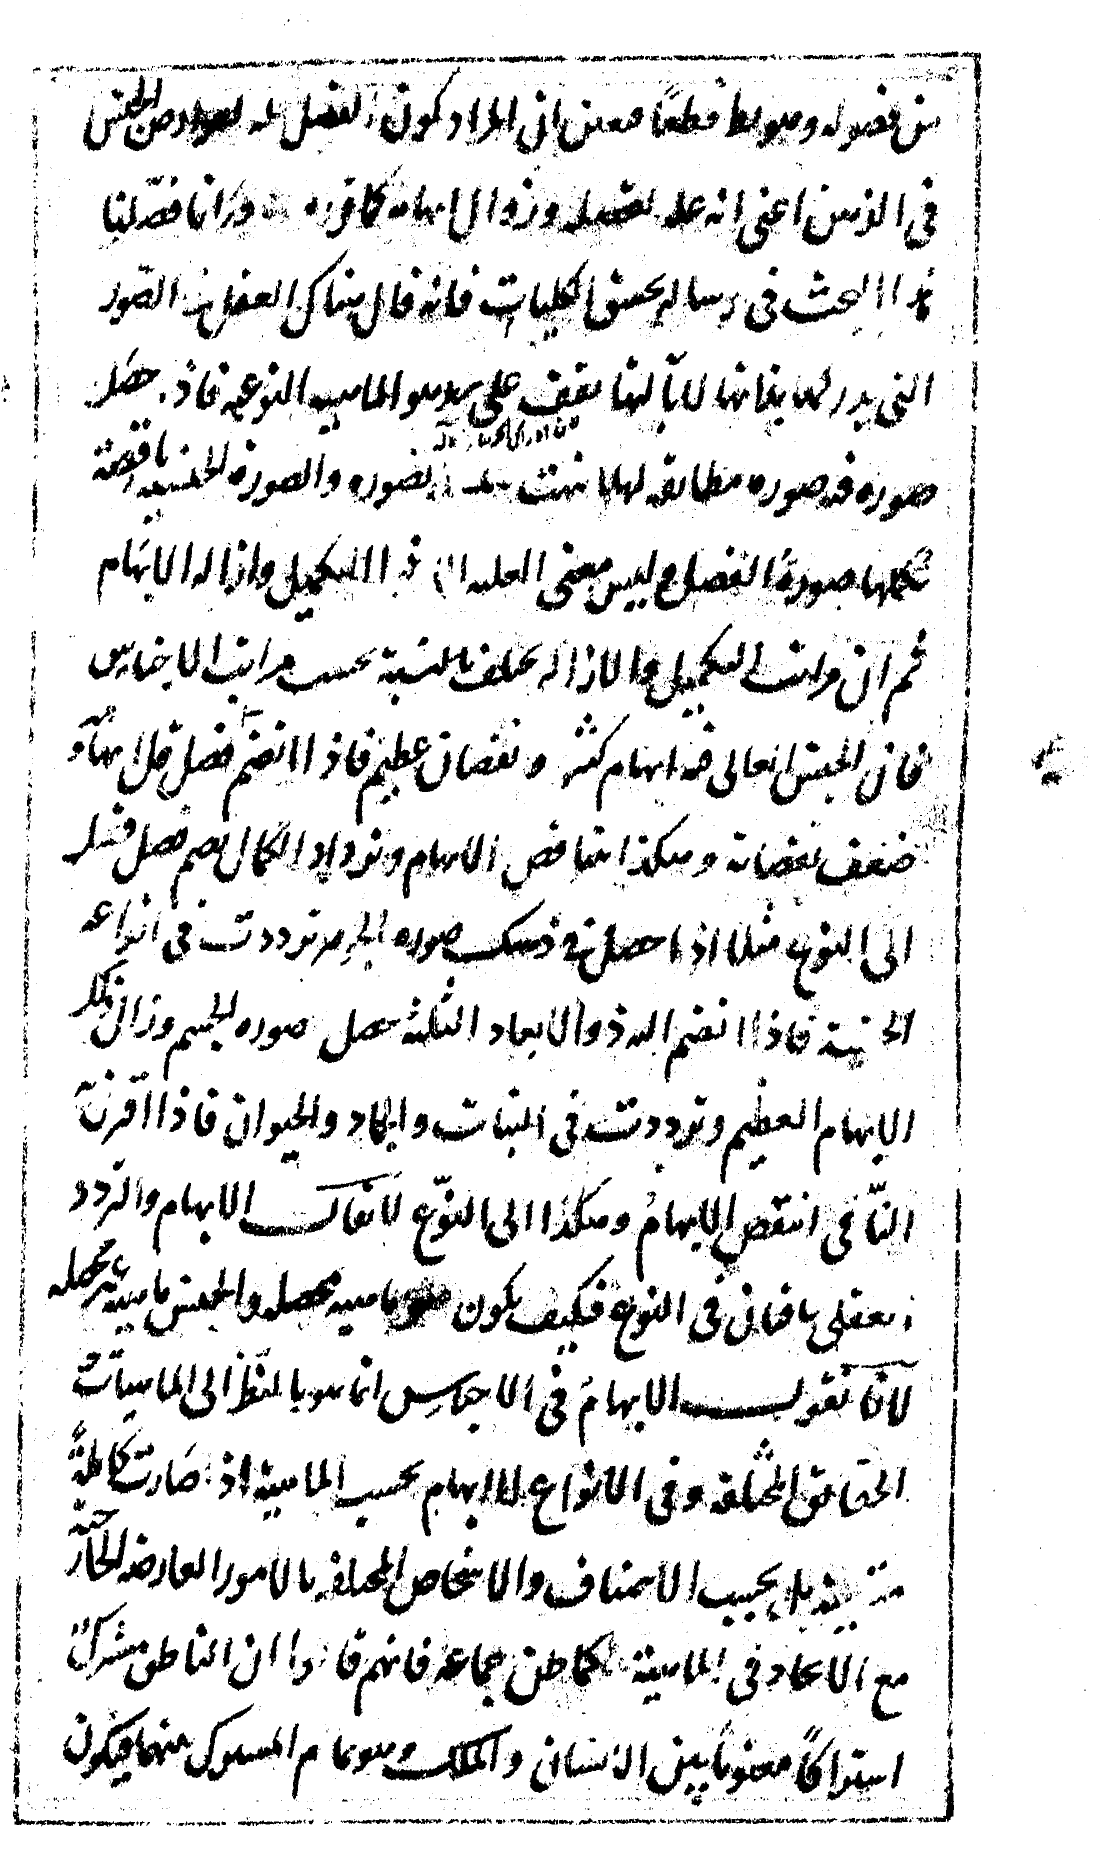 من فصوله وهو بط قطعا فتعين ان المراد كون الفصل له من الجنس
فى الذهن اعنى انه علة لتحصله وزوال ابهامه كما قرره وزاننا فصّلنا
هذا البحث فى رسالة تحقيق الكليات فانه قال هناك العقل من الصور
التى يدركها بذاتها لا بآلتها يقف على الماهية النوعية فاذا حصل
صورة فيه صورة مطابقة لها الصورة والصورة الجنسية ناقصة
تكملها صورة الفصل وليس معنى العلية الا هذا التكميل وازالة الابهام
ثم ان مراتب التكميل والازالة يختلف بالنسبة بحسب مراتب الاجناس
فان الجنس العالى فيه ابهام كثير ونقصان عظيم فاذا انضم فصل قل ابهامه و
ضعف نقصانه وهكذا يتناقص الابهام ويزداد الكمال بضم فصل فصل
الى النوع مثلا اذا حصل فى ذهنك صورة الجوهر ترددت فى انواعه
الجنسية فاذا انضم اليه ذو الابعاد الثلثة حصل صورة الجسم وزال ذلك
الابهام العظيم وترددت فى النبات والجماد والحيوان فاذا اقرن به
النامى انتقص الابهام وهكذا الى النوع لا يقال الابهام والتردد
العقلى باقيان فى النوع فكيف يكون هو ماهية محصلة والجنس ماهية غير محصلة
لانا نقول الابهام فى الاجناس انما هو بالنظر الى الماهيات و
الحقائق المختلفة وفى الانواع لا ابهام بحسب الماهية اذ صارت كاملة
بل بحسب الاصناف والاشخاص المختلفة بالامور العارضة الخارجية
مع الاتحاد فى الماهية كما ظن جماعة فانهم قالوا ان الناطق مشترك
اشتراكا معنويا بين الانسان والملك وهو تمام المشترك بينهما فيكون